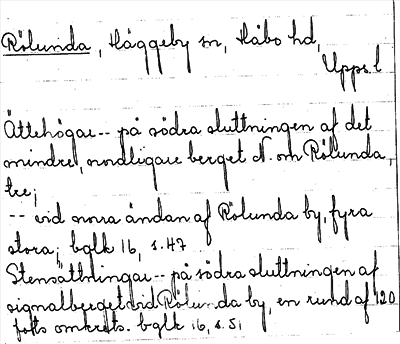 Rölunda, Häggeby sn, Håbo hd,
Upps. l
Ättehögar -- på södra sluttningen af det
mindre, nordligare berget N. om Rölunda,
tre;
-- vid norra ändan af Rölunda by, fyra
stora; bglk 16, s. 47.
Stensättningar -- på södra sluttningen af
signalberget vid Rölunda by, en rund af 120
fots omkrets. bglk 16, s. 51